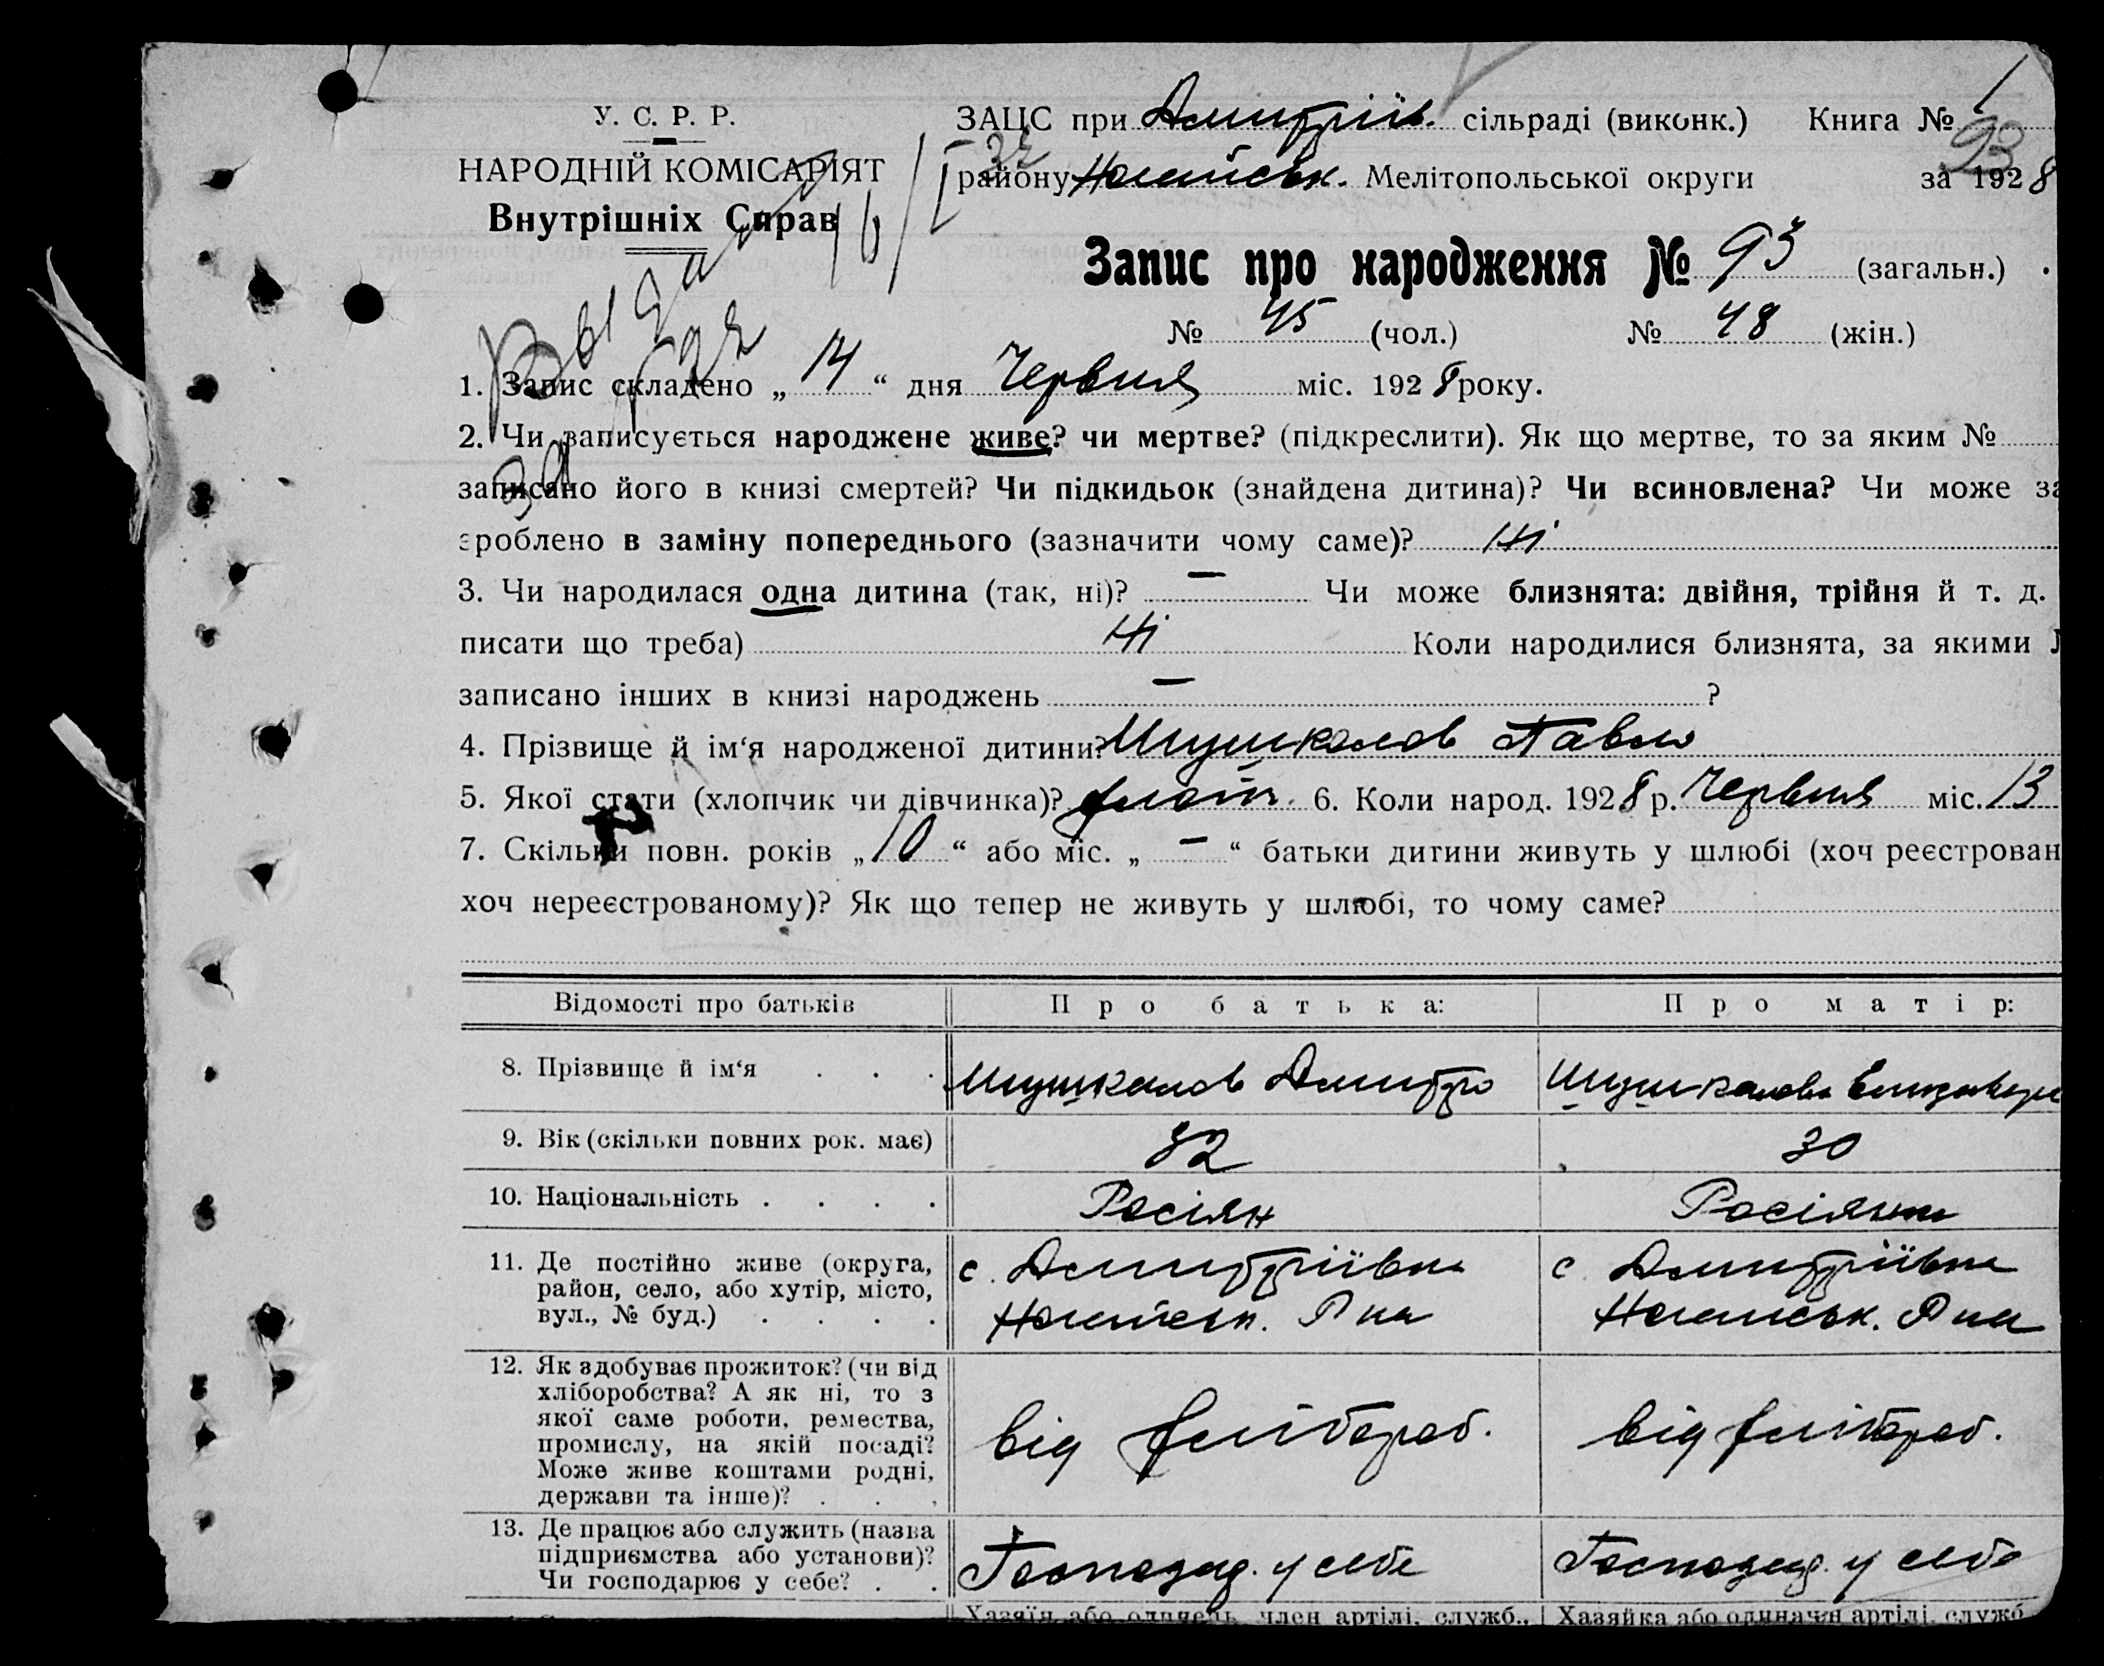 У. С. Р. Р.
НАРОДНІЙ КОМІСАРІЯТ
Внутрішніх Справ
ЗАЦС при Дмитріїв. сільраді (виконк.) Книга № 1
93
району Ногайськ. Мелітопольської округи за 1928
Запис про народження № 93 (загальн.)
№ 45 (чол.) № 48 (жін.)
1. Запис складено „14“ дня Червня міс. 1928 року.
2. Чи записується народжене живе? чи мертве? (підкреслити). Як що мертве, то за яким №
записано його в книзі смертей? Чи підкидьок (знайдена дитина)? Чи всиновлена? Чи може за
зроблено в заміну попереднього (зазначити чому саме)? Ні
3. Чи народилася одна дитина (так, ні)? — Чи може близнята: двійня, трійня й т. д.
писати що треба) Ні Коли народилися близнята, за якими
записано інших в книзі народжень — ?
4. Прізвище й ім‘я народженої дитини? Шушкалов Павло
5. Якої стати (хлопчик чи дівчинка)? хлоп. 6. Коли народ. 1928 р. Червня міс. 13
7. Скільки повн. років „10“ або міс. „—“ батьки дитини живуть у шлюбі (хоч реєстрован
хоч нереєстрованому)? Як що тепер не живуть у шлюбі, то чому саме?
Відомості про батьків Про батька: Про матір:
8. Прізвище й ім‘я . . . Шушкалов Дмитро Шушкалова Елизавета
9. Вік (скільки повних рок. має) 32 30
10. Національність . . . . Росіян Росіянка
11. Де постійно живе (округа,
район, село, або хутір, місто,
вул., № буд.) . . . .
с. Дмитріївка
Ногайськ. Р на
с. Дмитріївка
Ногайськ. Р на
12. Як здобуває прожиток? (чи від
хліборобства? А як ні, то з
якої саме роботи, ремества,
промислу, на якій посаді?
Може живе коштами родні,
держави та інше)? . . .
від хлібороб.
від хлібороб.
13. Де працює або служить (назва
підприємства або установи)?
Чи господарює у себе? . .
Господар. у себе
Господар. у себе
Хазяїн або одинець, член артілі, служб., Хазяйка або одиначн артілі, служб